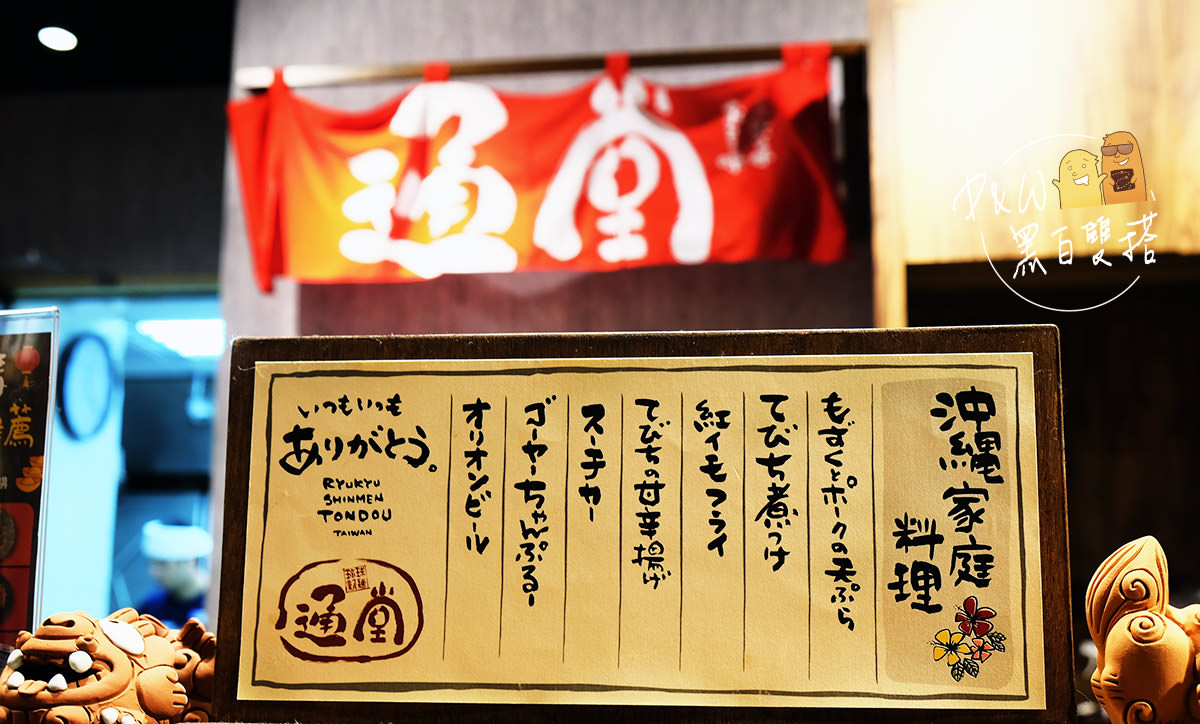 通堂
P&W
黑白雙搭
沖縄家庭
料理
もずくとポークの天ぷら
てびち煮つけ
紅イモフライ
てびちの甘辛揚げ
スーチカー
ゴーヤーちゃんぷるー
オリオンビール
いつもいつも
ありがとう。
RYUKYU
SHINMEN
TONDOU
TAIWAN
琉球
新麺
通堂
薦